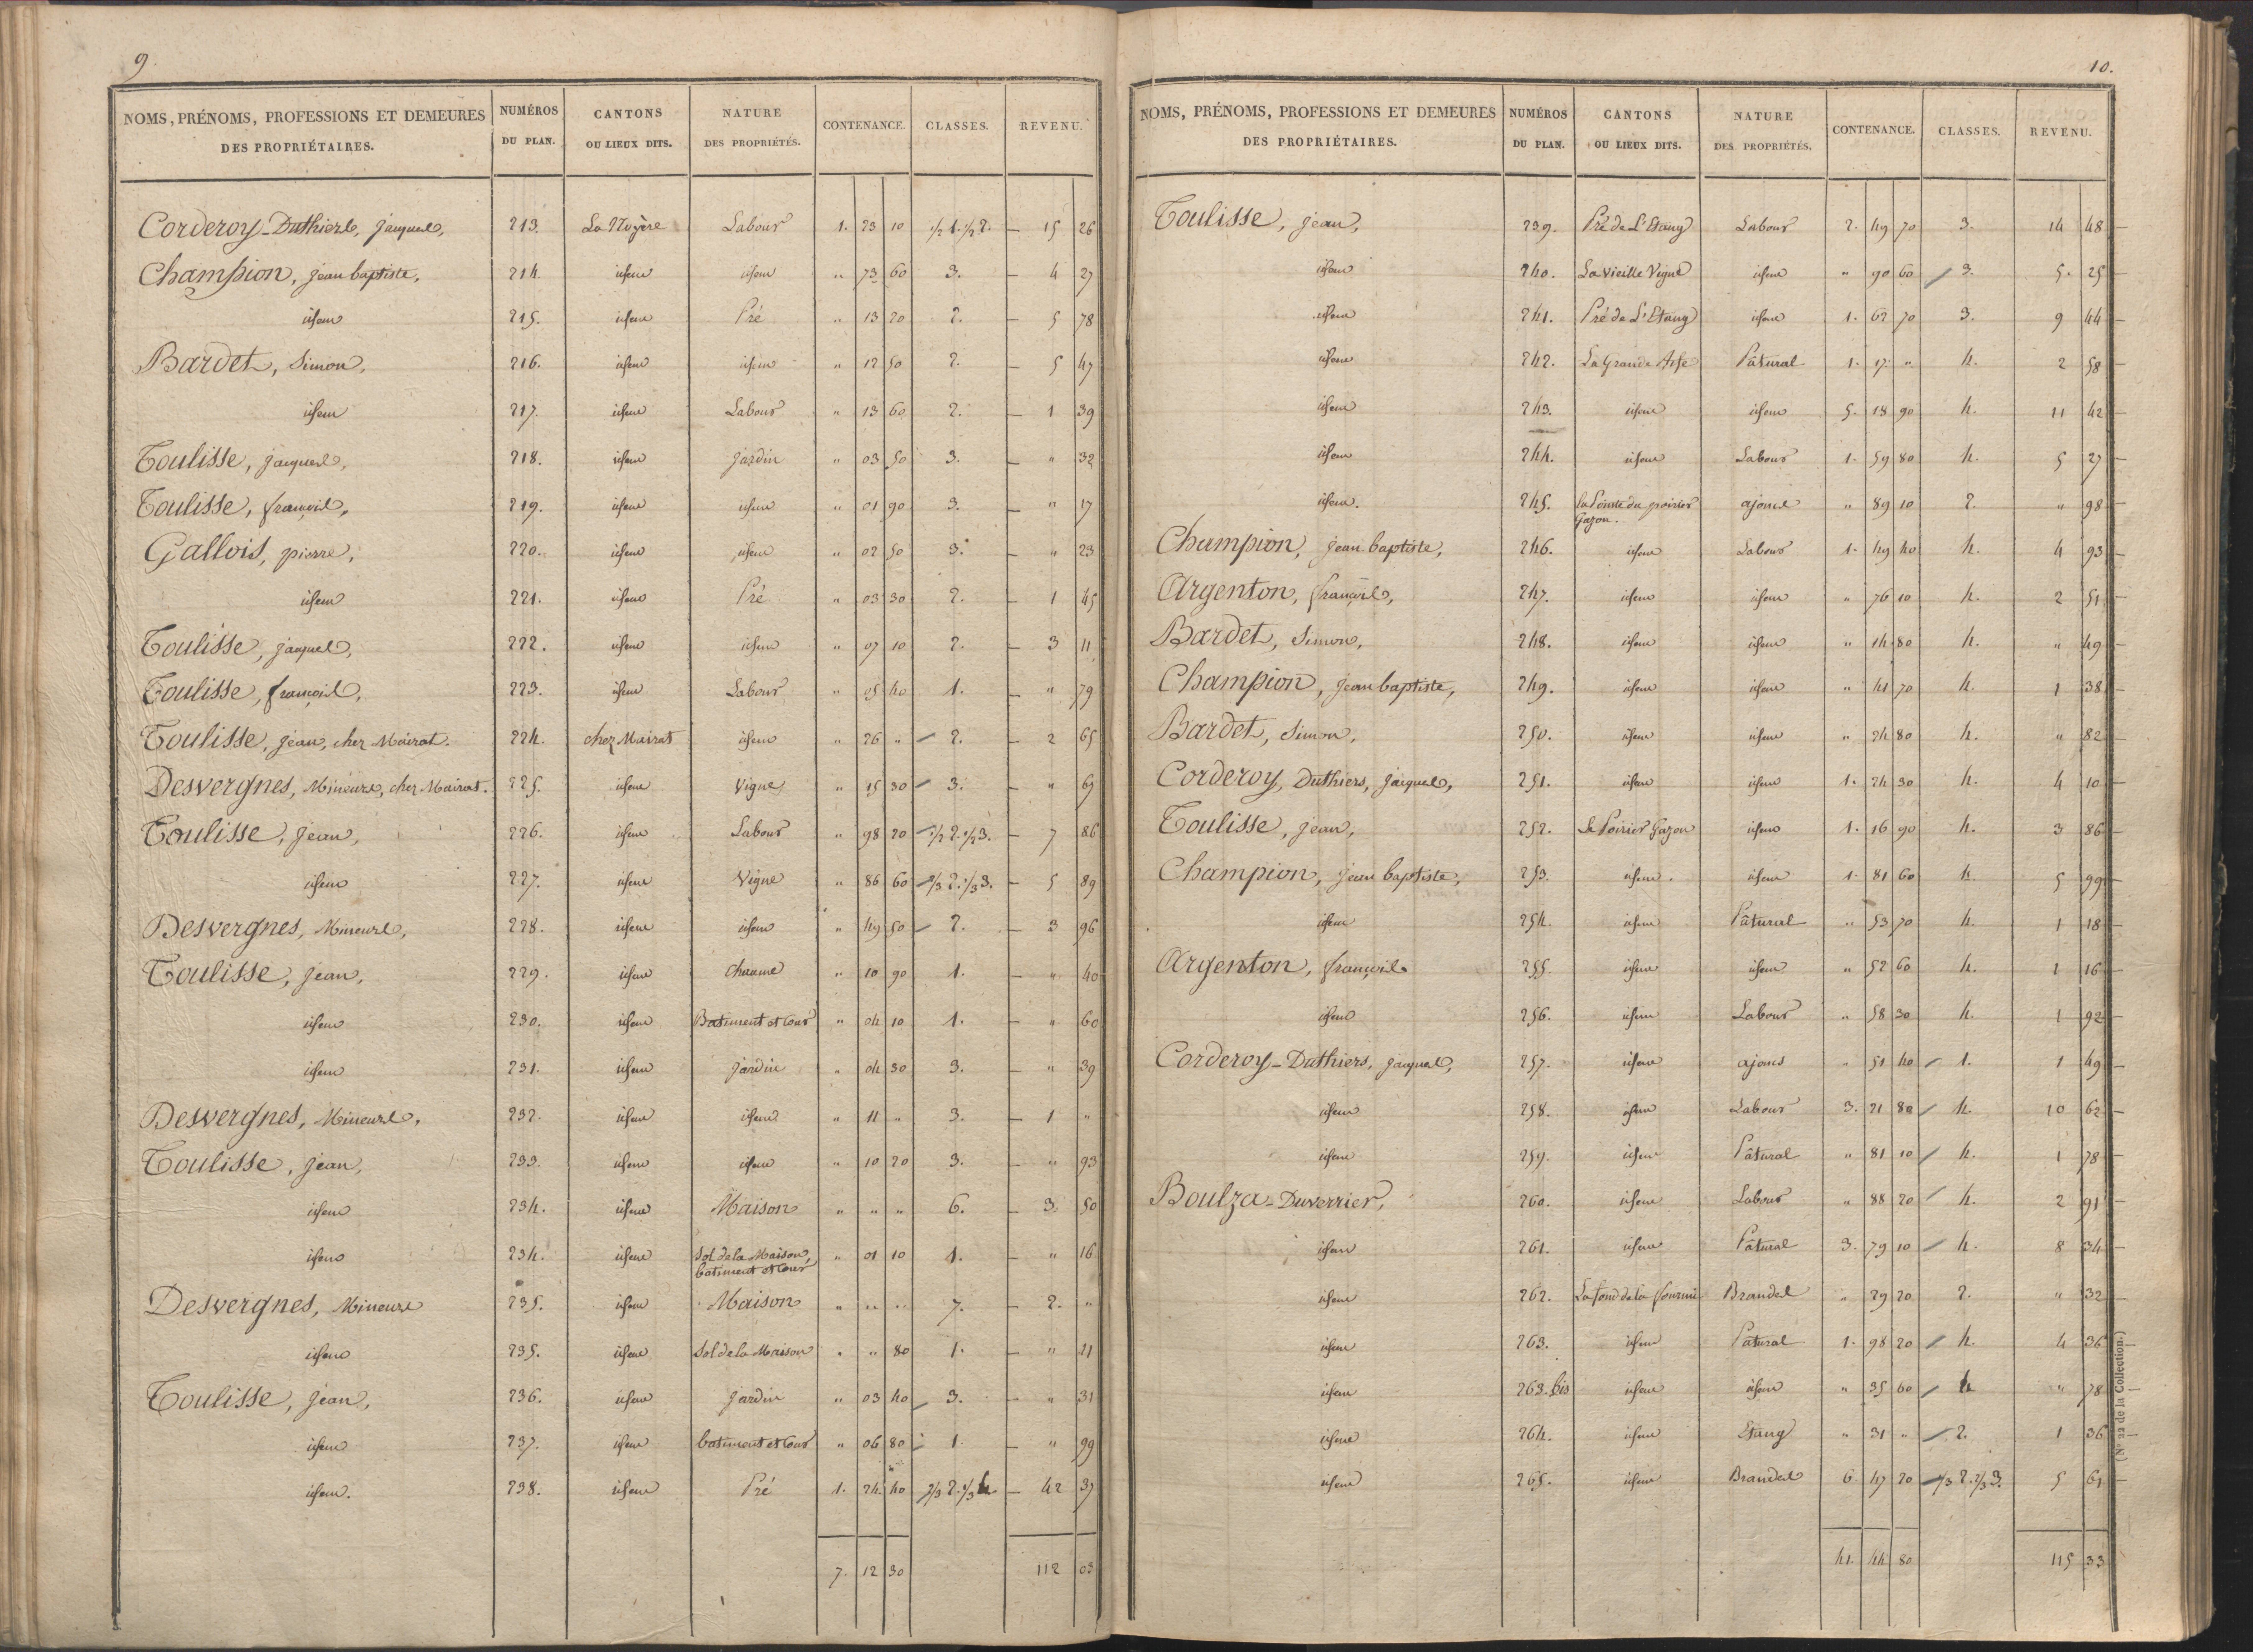 9.
NOMS, PRÉNOMS, PROFESSIONS ET DEMEURES DES PROPRIÉTAIRES. NUMÉROS DU PLAN. CANTONS OU LIEUX DITS. NATURE DES PROPRIÉTÉS. CONTENANCE. CLASSES. REVENU.
Corderoy-Duthiers, jacques, 213. La Noyère Labour 1. 23 10 1/2 1. 1/2 2. 15 26
Champion, jean baptiste, 214. idem idem " 73 60 3. 4 27
idem 215. idem Pré " 13 20 2. 5 78
Bardet, Simon, 216. idem idem " 12 50 2. 5 47
idem 217. idem Labour " 13 60 2. 1 39
Toulisse, jacques, 218. idem jardin " 03 50 3. " 32
Toulisse, françois, 219. idem idem " 01 90 3. " 17
Gallois, pierre, 220. idem idem " 02 50 3. " 23
idem 221. idem Pré " 03 30 2. 1 45
Toulisse, jacques, 222. idem idem " 07 10 2. 3 11
Toulisse, françois, 223. idem Labour " 05 40 1. " 79
Toulisse, jean, chez Mairat. 224. chez Mairat idem " 26 " 2. 2 65
Desvergnes, Mineurs, chez Mairat. 225. idem Vigne " 15 30 3. " 69
Toulisse, jean, 226. idem Labour " 98 20 1/2 2. 1/2 3. 7 86
idem 227. idem Vigne " 86 60 2/3 2. 1/3 3. 5 89
Desvergnes, Mineurs, 228. idem idem " 49 50 2. 3 96
Toulisse, jean, 229. idem chaume " 10 90 1. " 40
idem 230. idem Batiment et Cour " 04 10 1. " 60
idem 231. idem jardin " 04 30 3. " 39
Desvergnes, Mineurs, 232. idem idem " 11 " 3. 1 "
Toulisse, jean, 233. idem idem " 10 20 3. " 93
idem 234. idem Maison " " " 6. 3. 50
idem 234. idem Sol de la Maison, batiment et Cour " 01 10 1. " 16
Desvergnes, Mineurs 235. idem Maison " " " 7. 2. "
idem 235. idem Sol de la Maison " " 80 1. " 11
Toulisse, jean, 236. idem Jardin " 03 40 3. " 31
idem 237. idem batiment et Cour " 06 80 1 " 99
idem. 238. idem Pré 1. 24 40 2/3 2. 1/3 4. 42 37
7. 12 30 112 03
10.
NOMS, PRÉNOMS, PROFESSIONS ET DEMEURES DES PROPRIÉTAIRES. NUMÉROS DU PLAN. CANTONS OU LIEUX DITS. NATURE DES PROPRIÉTÉS. CONTENANCE. CLASSES. REVENU.
Toulisse, jean, 239. Pré de L'Etang Labour 2. 49 70 3. 14 48
idem 240. La vieille Vigne idem " 90 60 3. 5. 25
idem 241. Pré de L'Etang idem 1. 62 70 3. 9 44
idem 242. La grande Pâtural 1. 17 " 4. 2 58
idem 243. idem idem 5. 18 90 4. 11 42
idem 244. idem Labour 1. 59 80 4. 5 27
idem. 245. la Pointe du poirier Gazon. ajoncs " 89 10 2. " 98
Champion, jean baptiste, 246. idem Labour 1. 49 40 4. 4 93
Argenton, françois, 247. idem idem " 76 10 4. 2 51
Bardet, Simon, 248. idem idem " 14 80 4. " 49
Champion, jean baptiste, 249. idem idem " 41 70 4. 1 38
Bardet, Simon, 250. idem idem " 24 80 4. " 82
Corderoy, Duthiers, jacques, 251. idem idem 1. 24 30 4. 4 10
Toulisse, jean, 252. Le Poirier Gazon idem 1. 16 90 4. 3 86
Champion, jean baptiste, 253. idem. idem 1. 81 60 4. 5 99
idem 254. idem Pâtural " 53 70 4. 1 18
Argenton, françois 255. idem idem " 52 60 4. 1 16
idem 256. idem Labour " 58 30 4. 1 92
Corderoy-Duthiers, jacques, 257. idem ajoncs " 51 40 1. 1 49
idem 258. idem Labour 3. 21 80 4. 10 62
idem 259. idem Pâtural " 81 10 4. 1 78
Boulza-Duverrier, 260. idem Labour " 88 20 4. 2 91
idem 261. idem Pâtural 3. 79 10 4. 8 34
idem 262. La fond de la fourmi Brandes " 29 20 2. " 32
idem 263. idem Pâtural 1. 98 20 4. 4 36
idem 263. bis idem idem " 35 60 4 " 78
idem 264. idem Etang " 31 " 2. 1 36
idem 265. idem Brandes 6. 47 20 1/3 2. 2/3 3. 5 61
41. 44 80 115 33
(N° 22 de la Collection.)